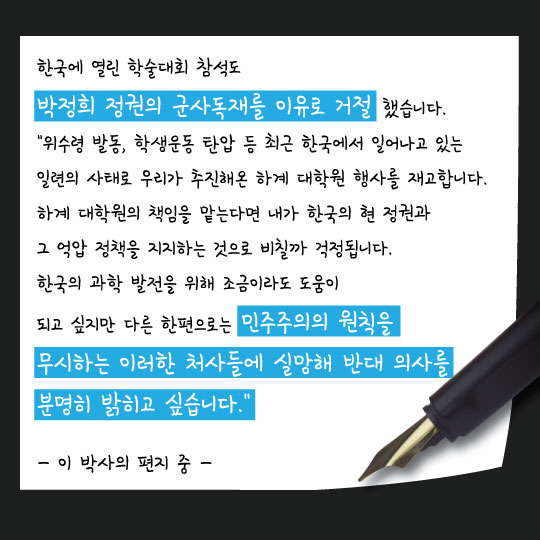 한국에 열린 학술대회 참석도
박정희 정권의 군사독재를 이유로 거절 했습니다.
"위수령 발동, 학생운동 탄압 등 최근 한국에서 일어나고 있는
일련의 사태로 우리가 추진해온 하계 대학원 행사를 재고합니다.
하계 대학원의 책임을 맡는다면 내가 한국의 현 정권과
그 억압 정책을 지지하는 것으로 비칠까 걱정됩니다.
한국의 과학 발전을 위해 조금이라도 도움이
되고 싶지만 다른 한편으로는 민주주의의 원칙을
무시하는 이러한 처사들에 실망해 반대 의사를
분명히 밝히고 싶습니다."
- 이 박사의 편지 중 -